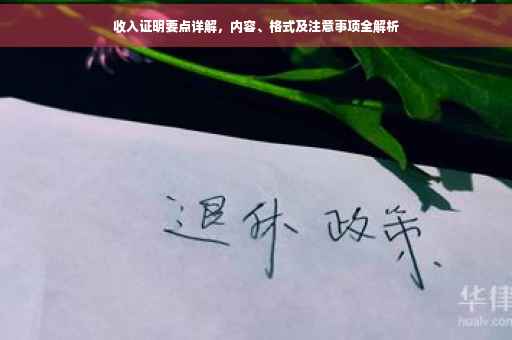 收入证明要点详解，内容、格式及注意事项全解析
退休 政策
华律
hualv.com